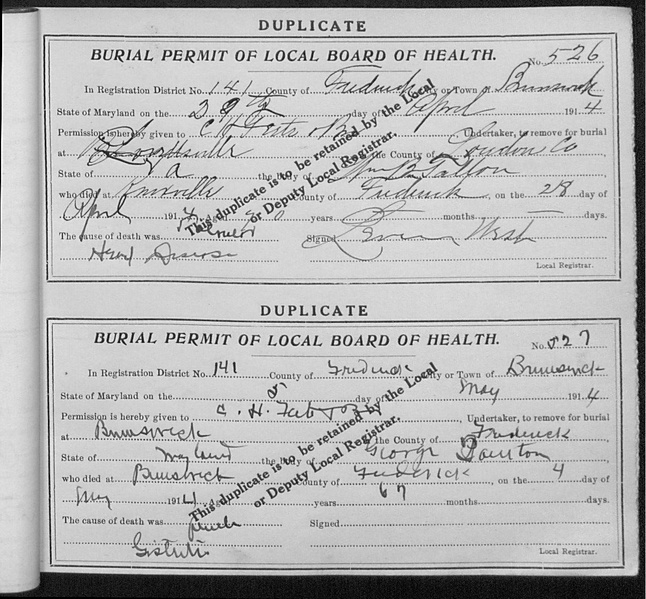 DUPLICATE
BURIAL PERMIT OF LOCAL BOARD OF HEALTH.
No. 526
In Registration District No. 141 County of Frederick City or Town of Brunswick
State of Maryland on the 29th day of April 1914
Permission is hereby given to C H Feete Undertaker, to remove for burial
at Lovettsville the County of Loudon Co
State of Va the body of Wm B Talton
who died at Knoxville County of Frederick, on the 28 day of
April 191 years months days.
The cause of death was Signed West
Heart Disease
Local Registrar.
This duplicate is to be retained by the Local
or Deputy Local Registrar.
DUPLICATE
BURIAL PERMIT OF LOCAL BOARD OF HEALTH.
No. 527
In Registration District No. 141 County of Frederick City or Town of Brunswick
State of Maryland on the 5 day of May 1914
Permission is hereby given to C. H. Feete, Undertaker, to remove for burial
at Brunswick the County of Frederick
State of Maryland the body of George
who died at Brunswick County of Frederick, on the 4 day of
May 1914 67 years months days.
The cause of death was Signed
Local Registrar.
This duplicate is to be retained by the Local
or Deputy Local Registrar.